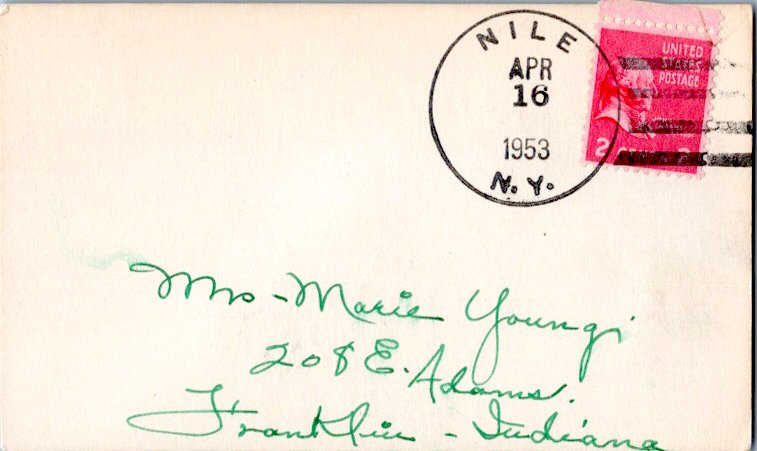 NILE
APR
16
1953
N.Y.
UNITED
STATES
POSTAGE
2 2
Mrs - Marie Young
208 E. Adams.
Franklin - Indiana